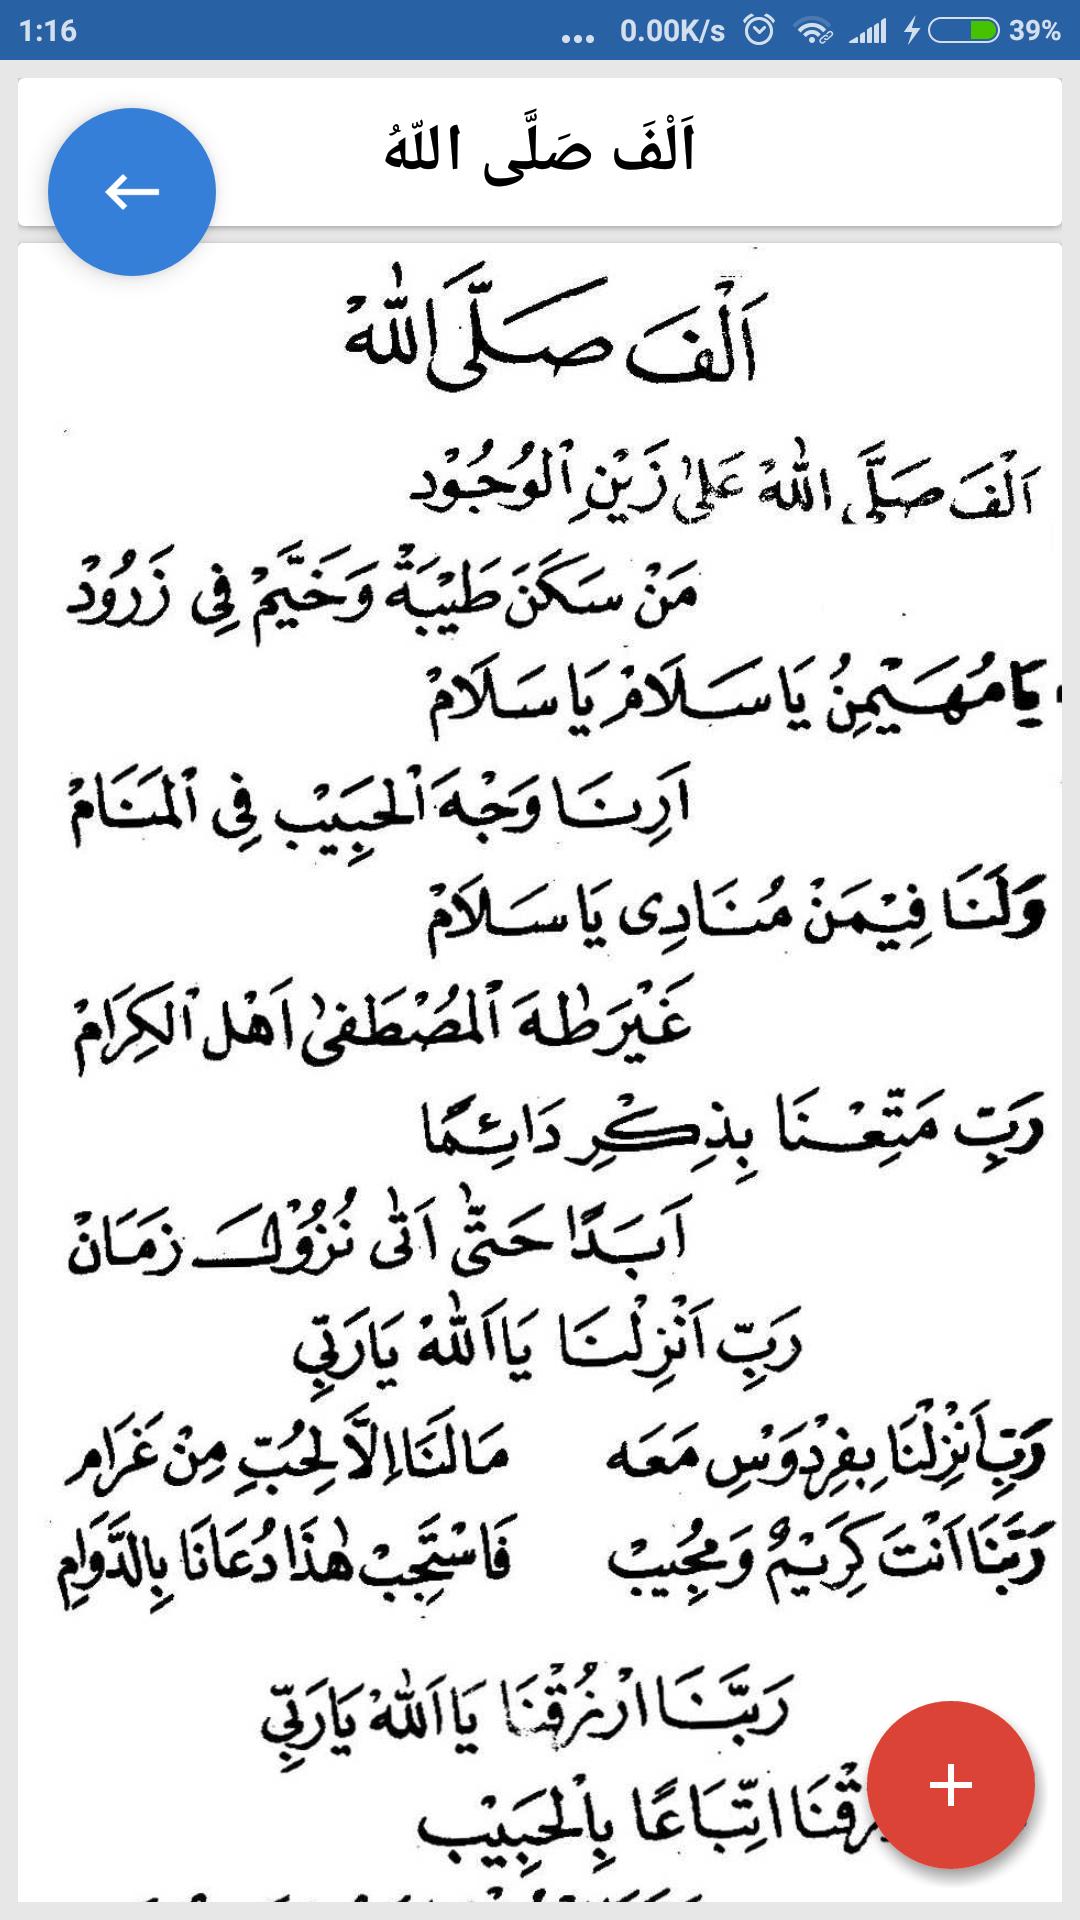 1:16 ... 0.00K/s 39%
اَلْفَ صَلَّى اللّٰهُ
اَلْفَ صَلَّى اللّٰهْ
اَلْفَ صَلَّى اللّٰهْ عَلٰى زَيْنِ الْوُجُوْد
مَنْ سَكَنَ طَيْبَةْ وَخَيَّمْ فِى زَرُوْدْ
يَامُهَيْمِنُ يَا سَلَامْ يَا سَلَامْ
اَرِنَا وَجْهَ الْحَبِيْب فِى الْمَنَامْ
وَلَنَا فِيْمَنْ مُنَادِى يَا سَلَامْ
غَيْرَ طٰهَ الْمُصْطَفٰى اَهْل الْكِرَامْ
رَبِّ مَتِّعْنَا بِذِكْرِ دَائِمًا
اَبَدًا حَتّٰى اَتٰى نُزُوْلَ زَمَانْ
رَبِّ اَنْزِلْنَا يَا اَللّٰهْ يَارَبِّي
رَبِّ اَنْزِلْنَا بِفِرْدَوْسِ مَعَه مَالَنَا اِلَّا لِحُبِّ مِنْ غَرَام
رَبَّنَا اَنْتَ كَرِيْمٌ وَمُجِيْبْ فَاسْتَجِبْ هٰذَا دُعَانَا بِالدَّوَامِ
رَبَّنَا ارْزُقْنَا يَا اَللّٰهْ يَارَبِّي
اتِّبَاعًا بِالْحَبِيْب